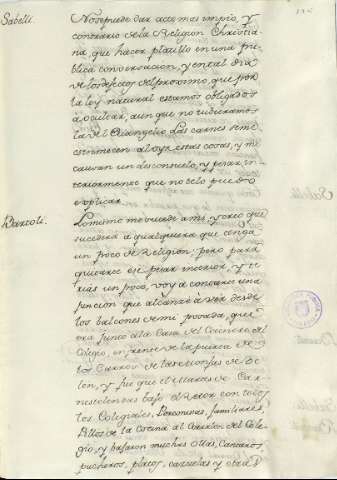 Sabelli. No se puede dar acto mas impio, y
contrario de la Religion Christia-
na, que hacer platillo en una pu-
blica conversacion, y en tal dia
de los defectos del proximo, que por
la ley natural estamos obligados
a ocultar, aun que no tubieramos
la del Evangelio. Las carnes se me
estremecen al oyr estas cosas, y me
causan un desconsuelo, y pesar in-
teriormente que no te lo puedo
explicar.
Bartoli. Lo mismo me sucede a mi, y creo que
sucederá a qualquiera que tenga
un poco de Religion; pero para
quitarte ese pesar interior, y te
rias un poco, voy a contarte una
funcion que alcanzé a ver desde
los balcones de mi posada, que
era junto a la Casa del Cocinero del
Colegio, en frente de la puerta de
los Carros de las Monjas de Be-
len, y fue que el Martes de Car-
nestolendas bajó el Retor con todos
los Colegiales, familiares,
Pillos de la Cocina al Corredor del Cole-
gio, y bajaron muchas ollas, Cantaros
pucheros, platos, cazuelas y otras